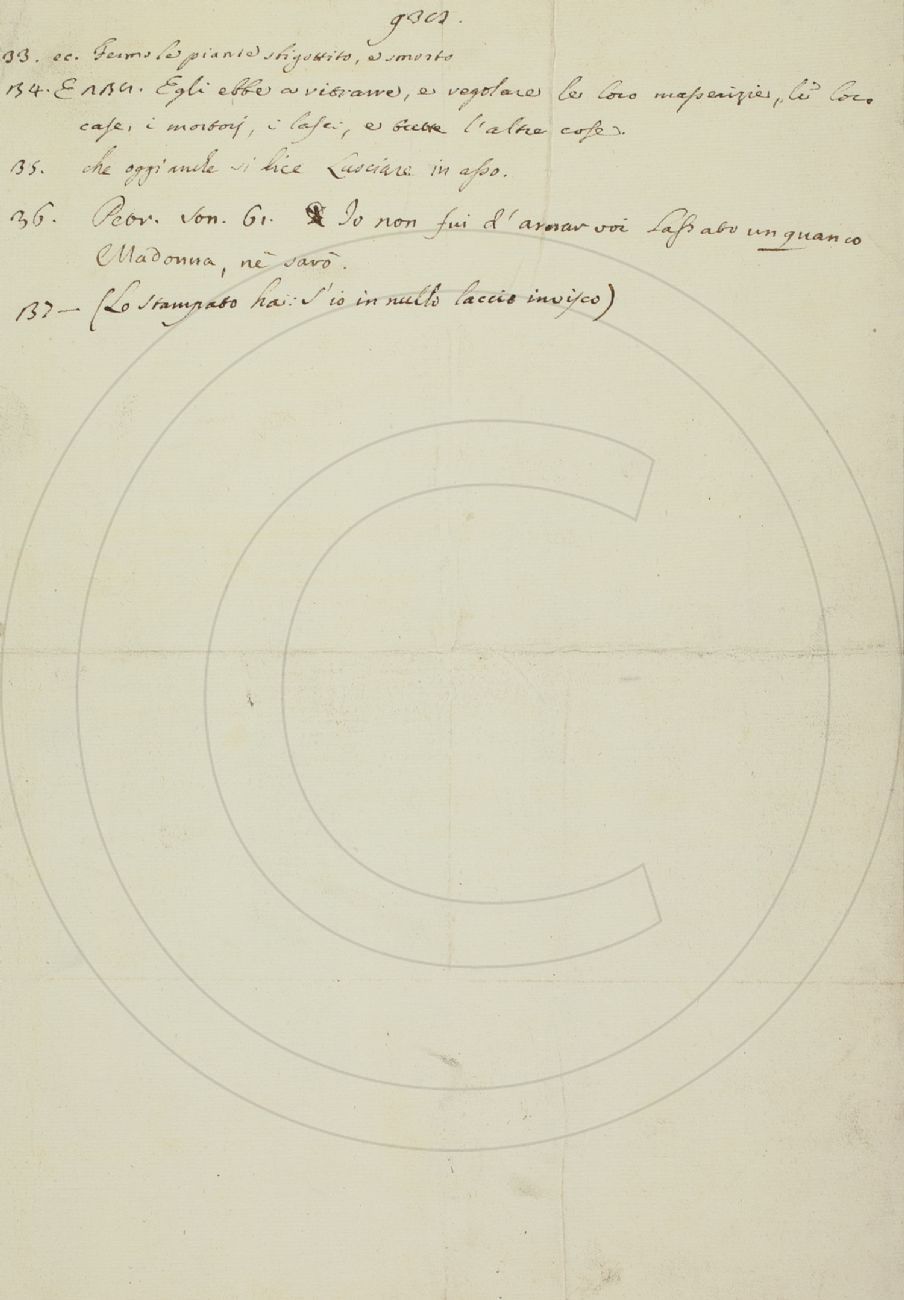 33. ec. Fermò le piante sbigottito, e smorto
134. E 1134. Egli ebbe a ritrarre, e regolare le loro masserizie, li loro
case, i mortorj, i lasci, e tutte l'altre cose.
135. che oggi anche si dice Lasciare in asso.
136. Petr. Son. 61. Io non fui d'amar voi Lassato unquanco
Madonna, nè sarò.
137 — (Lo stampato ha: S'io in nullo laccio invisco)